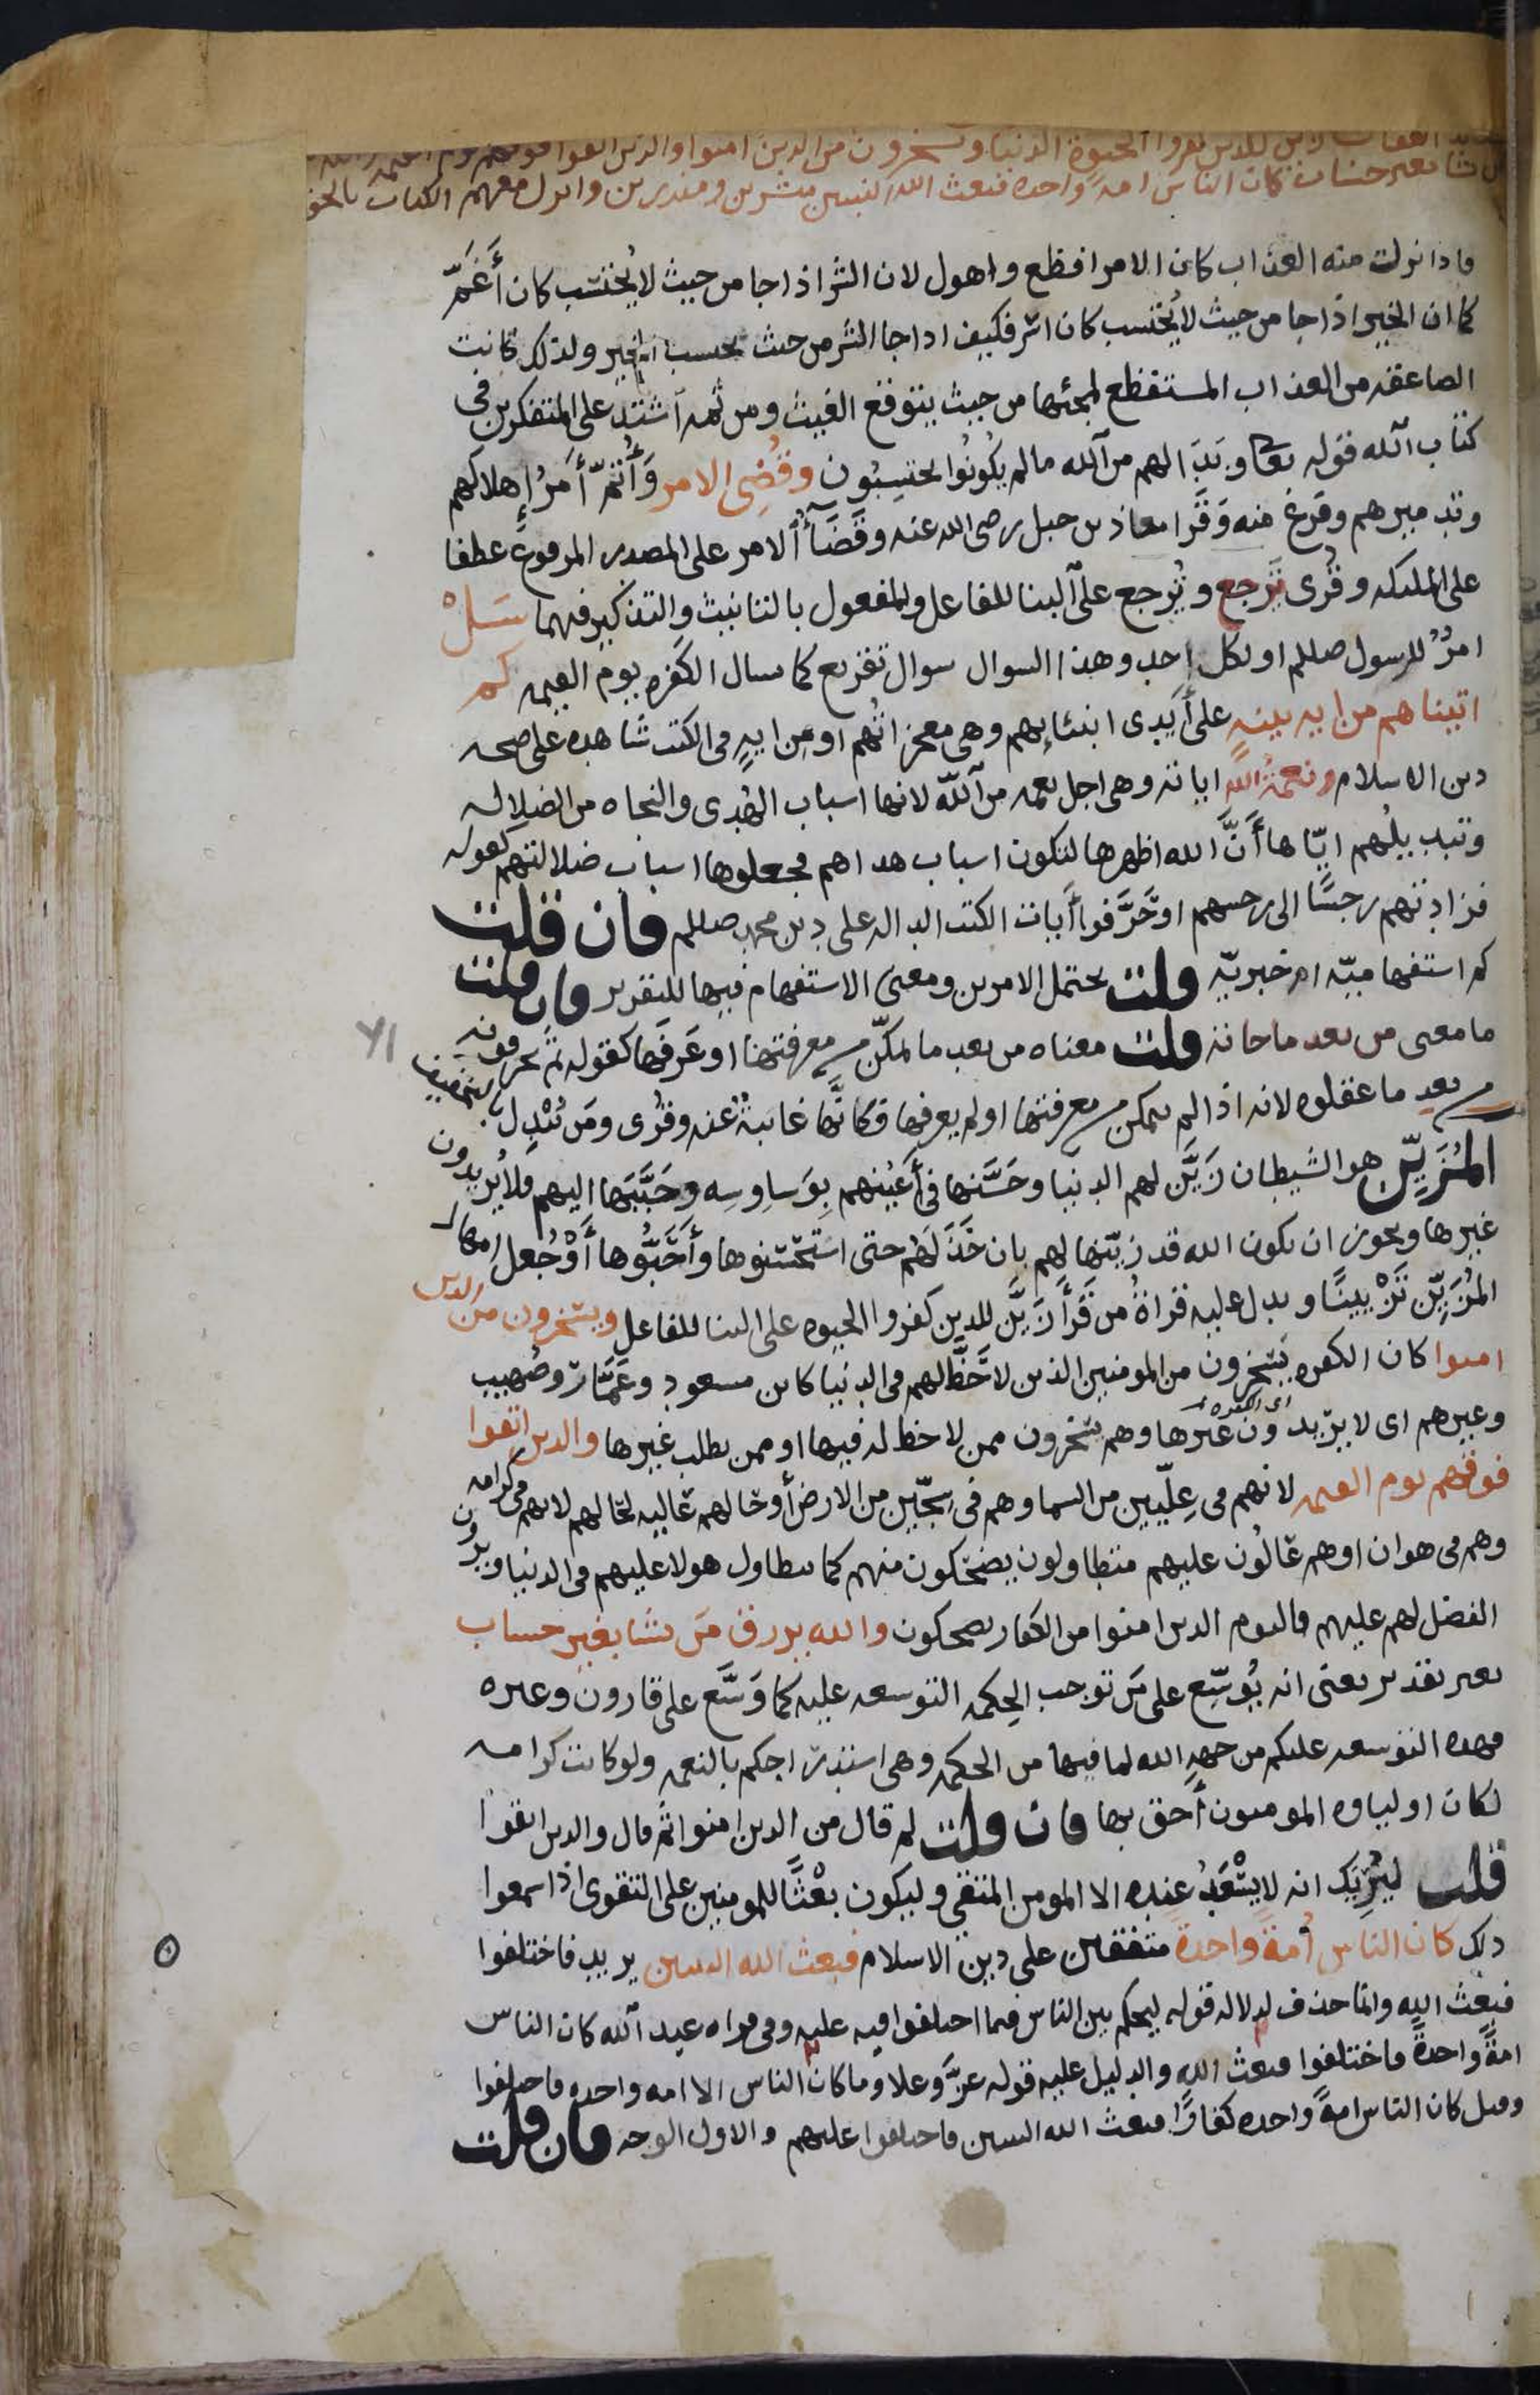 العقاب زين للذين كفروا الحيوة الدنيا ويسخرون من الذين امنوا والذين اتقوا فوقهم يوم القيمه والله
من يشا بغير حساب كان الناس امة واحدة فبعث الله النبيين مبشرين ومنذرين وانزل معهم الكتاب بالحق
فاذا نزلت منه العذاب كان الامر افظع واهول لان الشر اذا جا من حيث لا يُحتسب كان أَغَمّ
كما ان الخير اذا جا من حيث لا يُحتسب كان اسّر فكيف اذا جا الشر من حيث يحتسب الخير ولذلك كانت
الصاعقه من العذاب المستفظع لمجئها من حيث يتوقع الغيث ومن ثمه اشتد على المتفكرين في
كتاب الله قوله تعا وبَدَا لهم من الله ما لم يكُونُوا يحتسِبُون وقُضِي الامر وَأُتمّ أَمرُ إِهلاكهم
وتدميرهم وفَرغ منه وَقَرا معاذ بن جبل رضى الله عنه وقَضَآءُ الامر على المصدر المرفوع عطفا
على الملئكه وقُرى تَرجع وتُرجع على البنا للفاعل والمفعول بالتانيث والتذكير فيهما سَلْ
امرٌ للرسول صللم او لكل احد وهذا السوال سوال تقريع كما يسال الكفره يوم القيمه كم
اتيناهم من ايه بينهٍ على أَيدى انبيائهم وهى معجزاتُهم او من ايهٍ في الكتب شاهده على صحه
دين الاسلام ونعمةُ الله اياته وهى اجل نعمه من الله لانها اسباب الهُدى والنجاه من الضلاله
وتبديلُهم ايّاها أَنَّ الله اظهرها لتكون اسباب هداهم فجعلوها اسباب ضلالتهم كقوله
فزادتهم رجسًا الى رجسهم او حَرَّفوا أيات الكتب الداله على دين محمد صللم فان قلت
كم استفهاميّه ام خبريّه قلت يحتمل الامرين ومعنى الاستفهام فيها للتقرير فان قلت
ما معنى من بعد ما جاته قلت معناه من بعد ما تمكّن من معرفتها او عَرفَها كقوله ثم يحرفونه
من بعد ما عقلوه لانه اذا لم يتمكن من معرفتها او لم يعرفها فكانَّها غايبةٌ عنه وقرُى ومَن يُبْدِل بالتخفيف
المُزَيِّن هو الشيطان زَيَّن لهم الدنيا وحَسَّنها في أَعيُنهم بِوَساوِسِه وحَبَّبَها اليهم فلا يُريدون
غيرها ويجوز ان يكون الله قد زيّنها لهم بان خَذَلَهُم حتى استحسنوها وأَحَبُّوها أَوْ جُعل امهال
المُزَيِّن تَزْيينًا ويدل عليه قراةُ من قَرَأَ زَيَّن للذين كفروا الحيوه على البنا للفاعل ويسخرون من الذين
امنوا كان الكفره يَسخرون من المومنين الذين لا حَظَّ لهم في الدنيا كابن مسعود وعَمَّار وصُهيب
وغيرهم اى لا يريدون غيرها وهم يسخرون ممن لا حظ له فيها او ممن يطلب غيرها والذين اتقوا
اى الكفره
فوقهم يوم القيمه لانهم في عِلِّيين من السما وهم في سِجّين من الارض أَو حَالهم عاليه لحالهم لانهم في كرامه
وهم في هوان او هم عَالُون عليهم متطاولون يضحكون منهم كما يتطاول هولا عليهم في الدنيا ويرون
الفضل لهم عليهم فاليوم الذين امنوا من الكفار يضحكون والله يرزق مَن يشا بغير حساب
بغير تقدير يعنى انه يُوسِّع على مَن توجب الحِكمه التوسعه عليه كما وَسَّع على قارون وغيره
فهذه التوسعه عليكم من جهه الله لما فيها من الحكمه وهى استدراجكم بالنعمه ولو كانت كرامه
لكان اولياوه المومنون أَحق بها فان قلت لم قال من الذين امنوا ثم قال والذين اتقوا
قلت ليُرِيَك انه لا يسْعَدُ عنده الا المومن المتقى وليكون بعْثًا للمومنين على التقوى اذا سمعوا
ذلك كان الناس أُمةً واحدةً متفقين على دين الاسلام فبعث الله النبيين يريد فاختلفوا
فبعث الله وانما حذف لدلاله قوله ليحكم بين الناس فيما اختلفوا فيه عليه وفي قراه عبد الله كان الناس
امةً واحدةً فاختلفوا فبعث الله والدليل عليه قوله عزَّ وعلا وما كان الناس الا امه واحده فاختلفوا
وقيل كان الناس امةً واحده كفارًا فبعث الله النبيين فاختلفوا عليهم والاول الوجه فان قلت